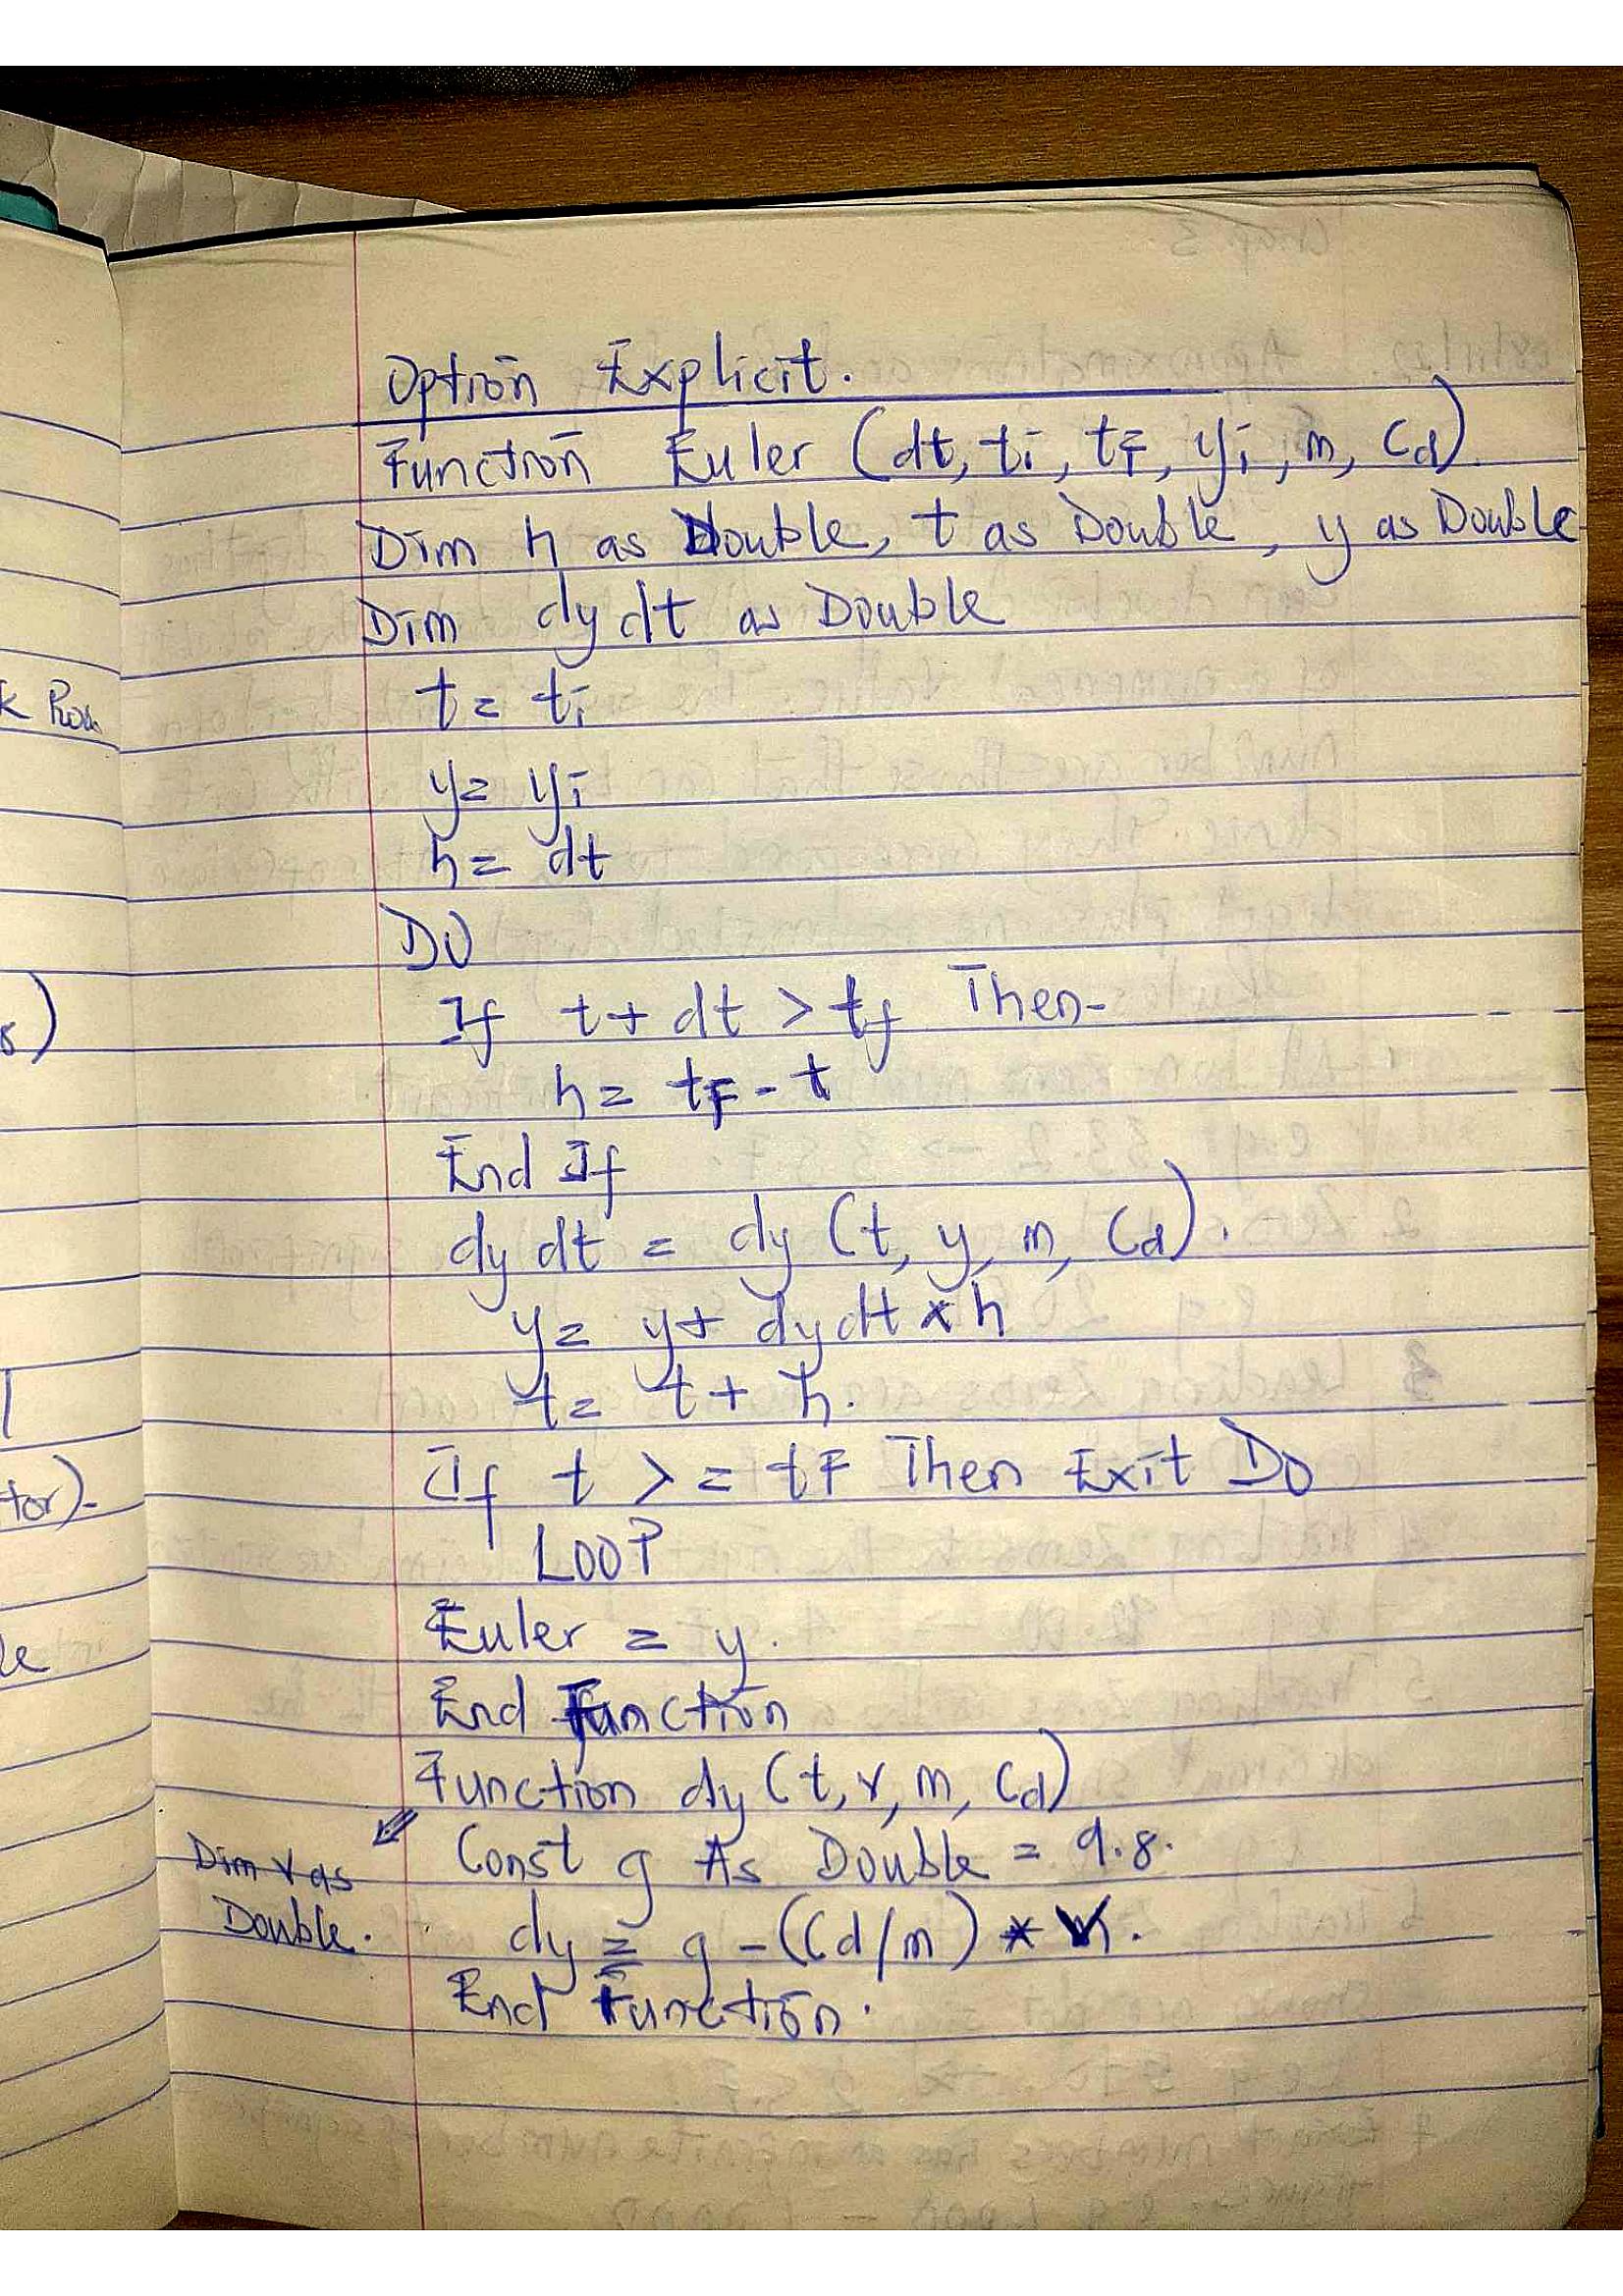 Option Explicit.
Function Euler (dt, ti, tF, yi, m, Cd)
Dim h as Double, t as Double, y as Double
Dim dydt as Double
t = ti
y = yi
h = dt
DO
If t + dt > tf Then
h = tF - t
End If
dydt = dy (t, y, m, Cd).
y = y + dydt * h
t = t + h.
If t >= tF Then Exit Do
LOOP
Euler = y.
End Function
Function dy (t, v, m, Cd)
Dim v as
Double.
Const g As Double = 9.8.
dy = g - (Cd/m) * v.
End Function.
tor)-